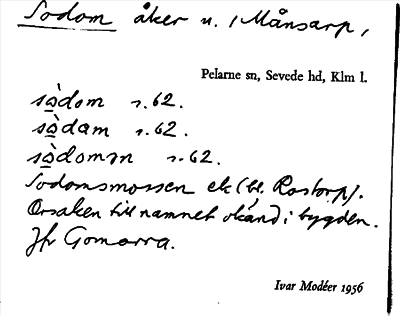 Sodom åker u. / Månsarp,
Pelarne sn, Sevede hd, Klm l.
sòdom r. 62.
sòdam r. 62.
sòdomən r. 62.
Sodomsmossen ek (bl. Rostorp).
Orsaken till namnet okänd i bygden.
Jfr Gomorra.
Ivar Modéer 1956